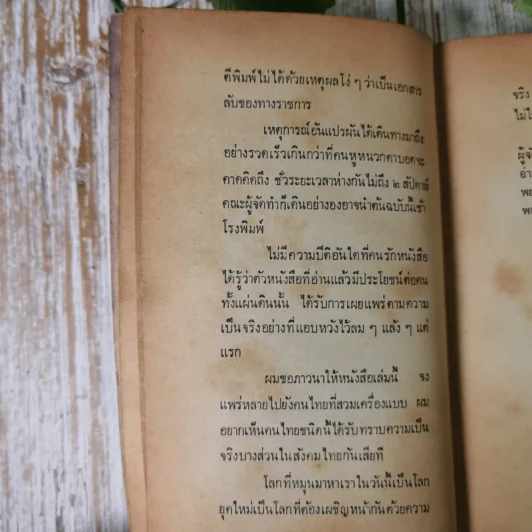 ตีพิมพ์ไม่ได้ด้วยเหตุผลโง่ ๆ ว่าเป็นเอกสาร
ลับของทางราชการ
เหตุการณ์อันแปรผันได้เดินทางมาถึง
อย่างรวดเร็วเกินกว่าที่คนหูหนวกตาบอดจะ
คาดคิดถึง ชั่วระยะเวลาห่างกันไม่ถึง ๒ สัปดาห์
คณะผู้จัดทำก็เดินอย่างองอาจนำต้นฉบับนี้เข้า
โรงพิมพ์
ไม่มีความปีติอันใดที่คนรักหนังสือ
ได้รู้ว่าตัวหนังสือที่อ่านแล้วมีประโยชน์ต่อคน
ทั้งแผ่นดินนั้น ได้รับการเผยแพร่ตามความ
เป็นจริงอย่างที่แอบหวังไว้ลม ๆ แล้ง ๆ แต่
แรก
ผมขอภาวนาให้หนังสือเล่มนี้ จง
แพร่หลายไปยังคนไทยที่สวมเครื่องแบบ ผม
อยากเห็นคนไทยชนิดนี้ได้รับทราบความเป็น
จริงบางส่วนในสังคมไทยกันเสียที
โลกที่หมุนมาหาเราในวันนี้เป็นโลก
ยุคใหม่เป็นโลกที่ต้องเผชิญหน้ากันด้วยความ
จริง